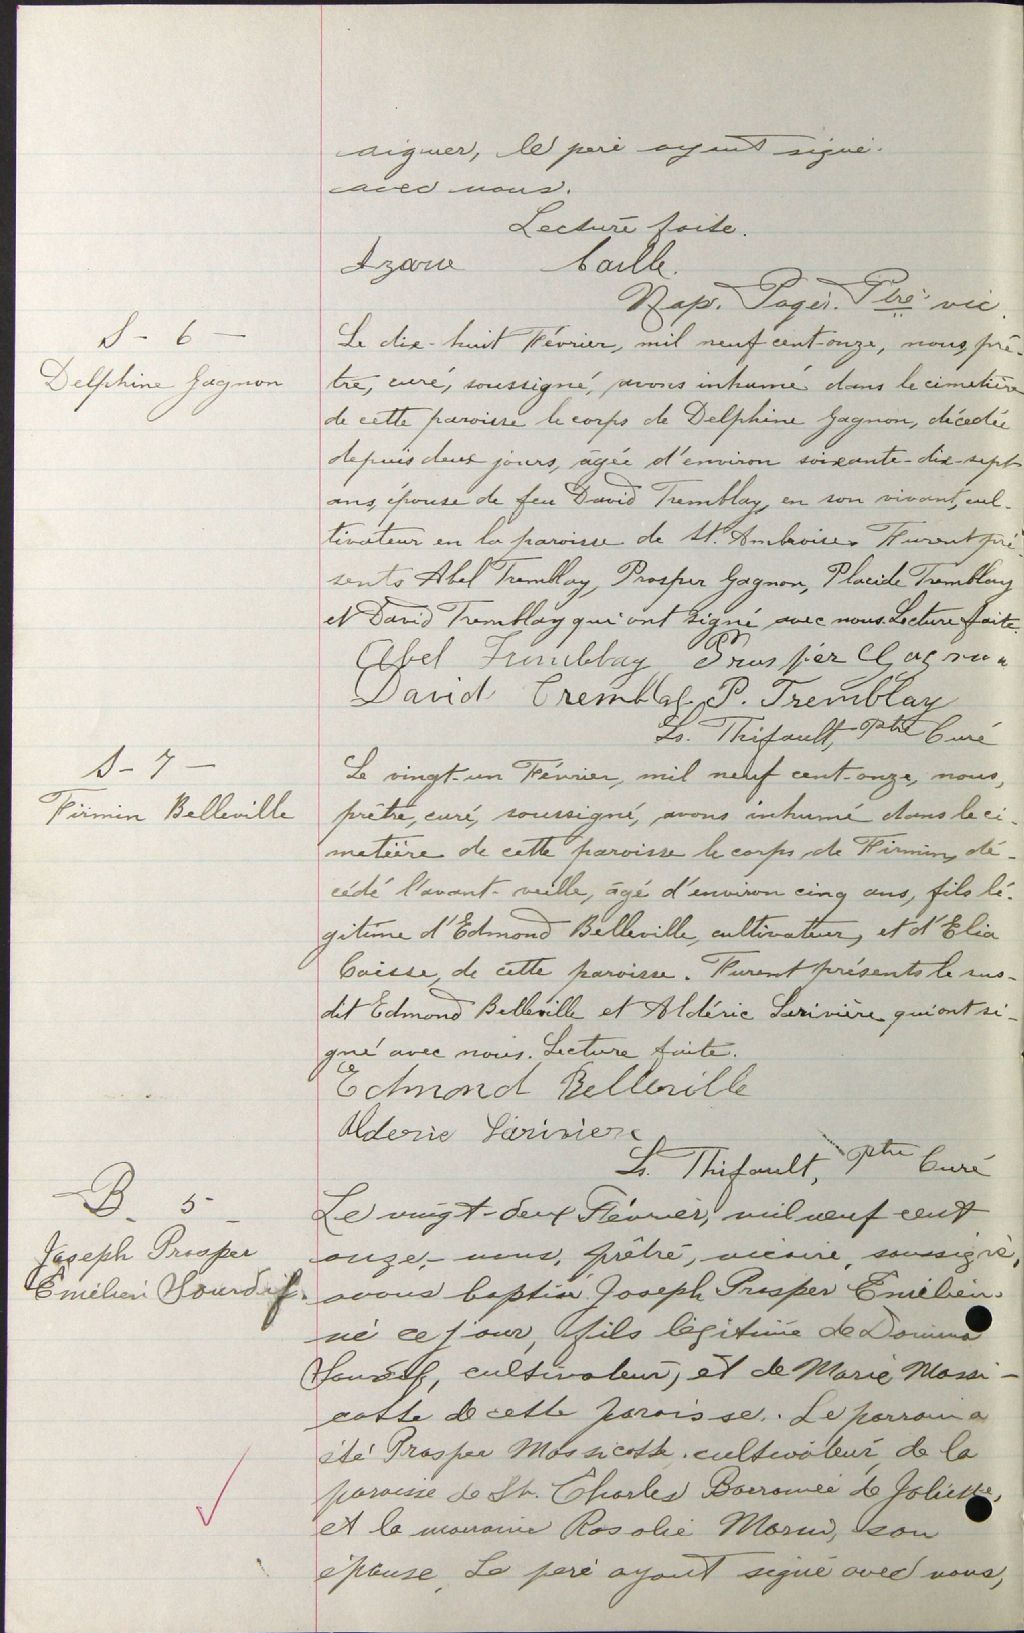 signer, le père ayant signé
avec nous.
Lecture faite.
Azarie Caille.
Nap. Pager. Ptre vic.
S - 6 -
Delphine Gagnon
Le dix-huit Février, mil neuf cent-onze, nous, prê-
tre, curé, soussigné, avons inhumé dans le cimetière
de cette paroisse le corps de Delphine Gagnon, décédée
depuis deux jours, âgée d'environ soixante-dix-sept
ans, épouse de feu David Tremblay, en son vivant, cul-
tivateur en la paroisse de St. Ambroise. Furent pré-
sents Abel Tremblay, Prosper Gagnon, Placide Tremblay
et David Tremblay qui ont signé avec nous. Lecture faite.
Abel Trembblay Prosper Gagnon
David Tremblay P. Tremblay
Ls. Thifault, Ptre Curé
S - 7 -
Firmin Belleville
Le vingt-un Février, mil neuf cent-onze, nous,
prêtre, curé, soussigné, avons inhumé dans le ci-
metière de cette paroisse le corps de Firmin, dé-
cédé l'avant-veille, âgé d'environ cinq ans, fils lé-
gitime d'Edmond Belleville, cultivateur, et d'Elia
Caisse, de cette paroisse. Furent présents le sus-
dit Edmond Belleville et Aldéric Larivière qui ont si-
gné avec nous. Lecture faite.
Edmond Belleville
Alderic Lariviere
Ls. Thifault, Ptre Curé
B - 5 -
Joseph Prosper
Émilien Sourdif.
Le vingt-deux Février, mil neuf cent
onze, nous, prêtre, vicaire, soussigné,
avons baptisé Joseph Prosper Émilien
né ce jour, fils légitime de Domina
Sourdif, cultivateur, et de Marie Massi-
cotte de cette paroisse. Le parrain a
été Prosper Massicotte cultivateur, de la
paroisse de St. Charles Borromée de Joliette,
et la marraine Rosalie Morin, son
épouse. Le père ayant signé avec nous,